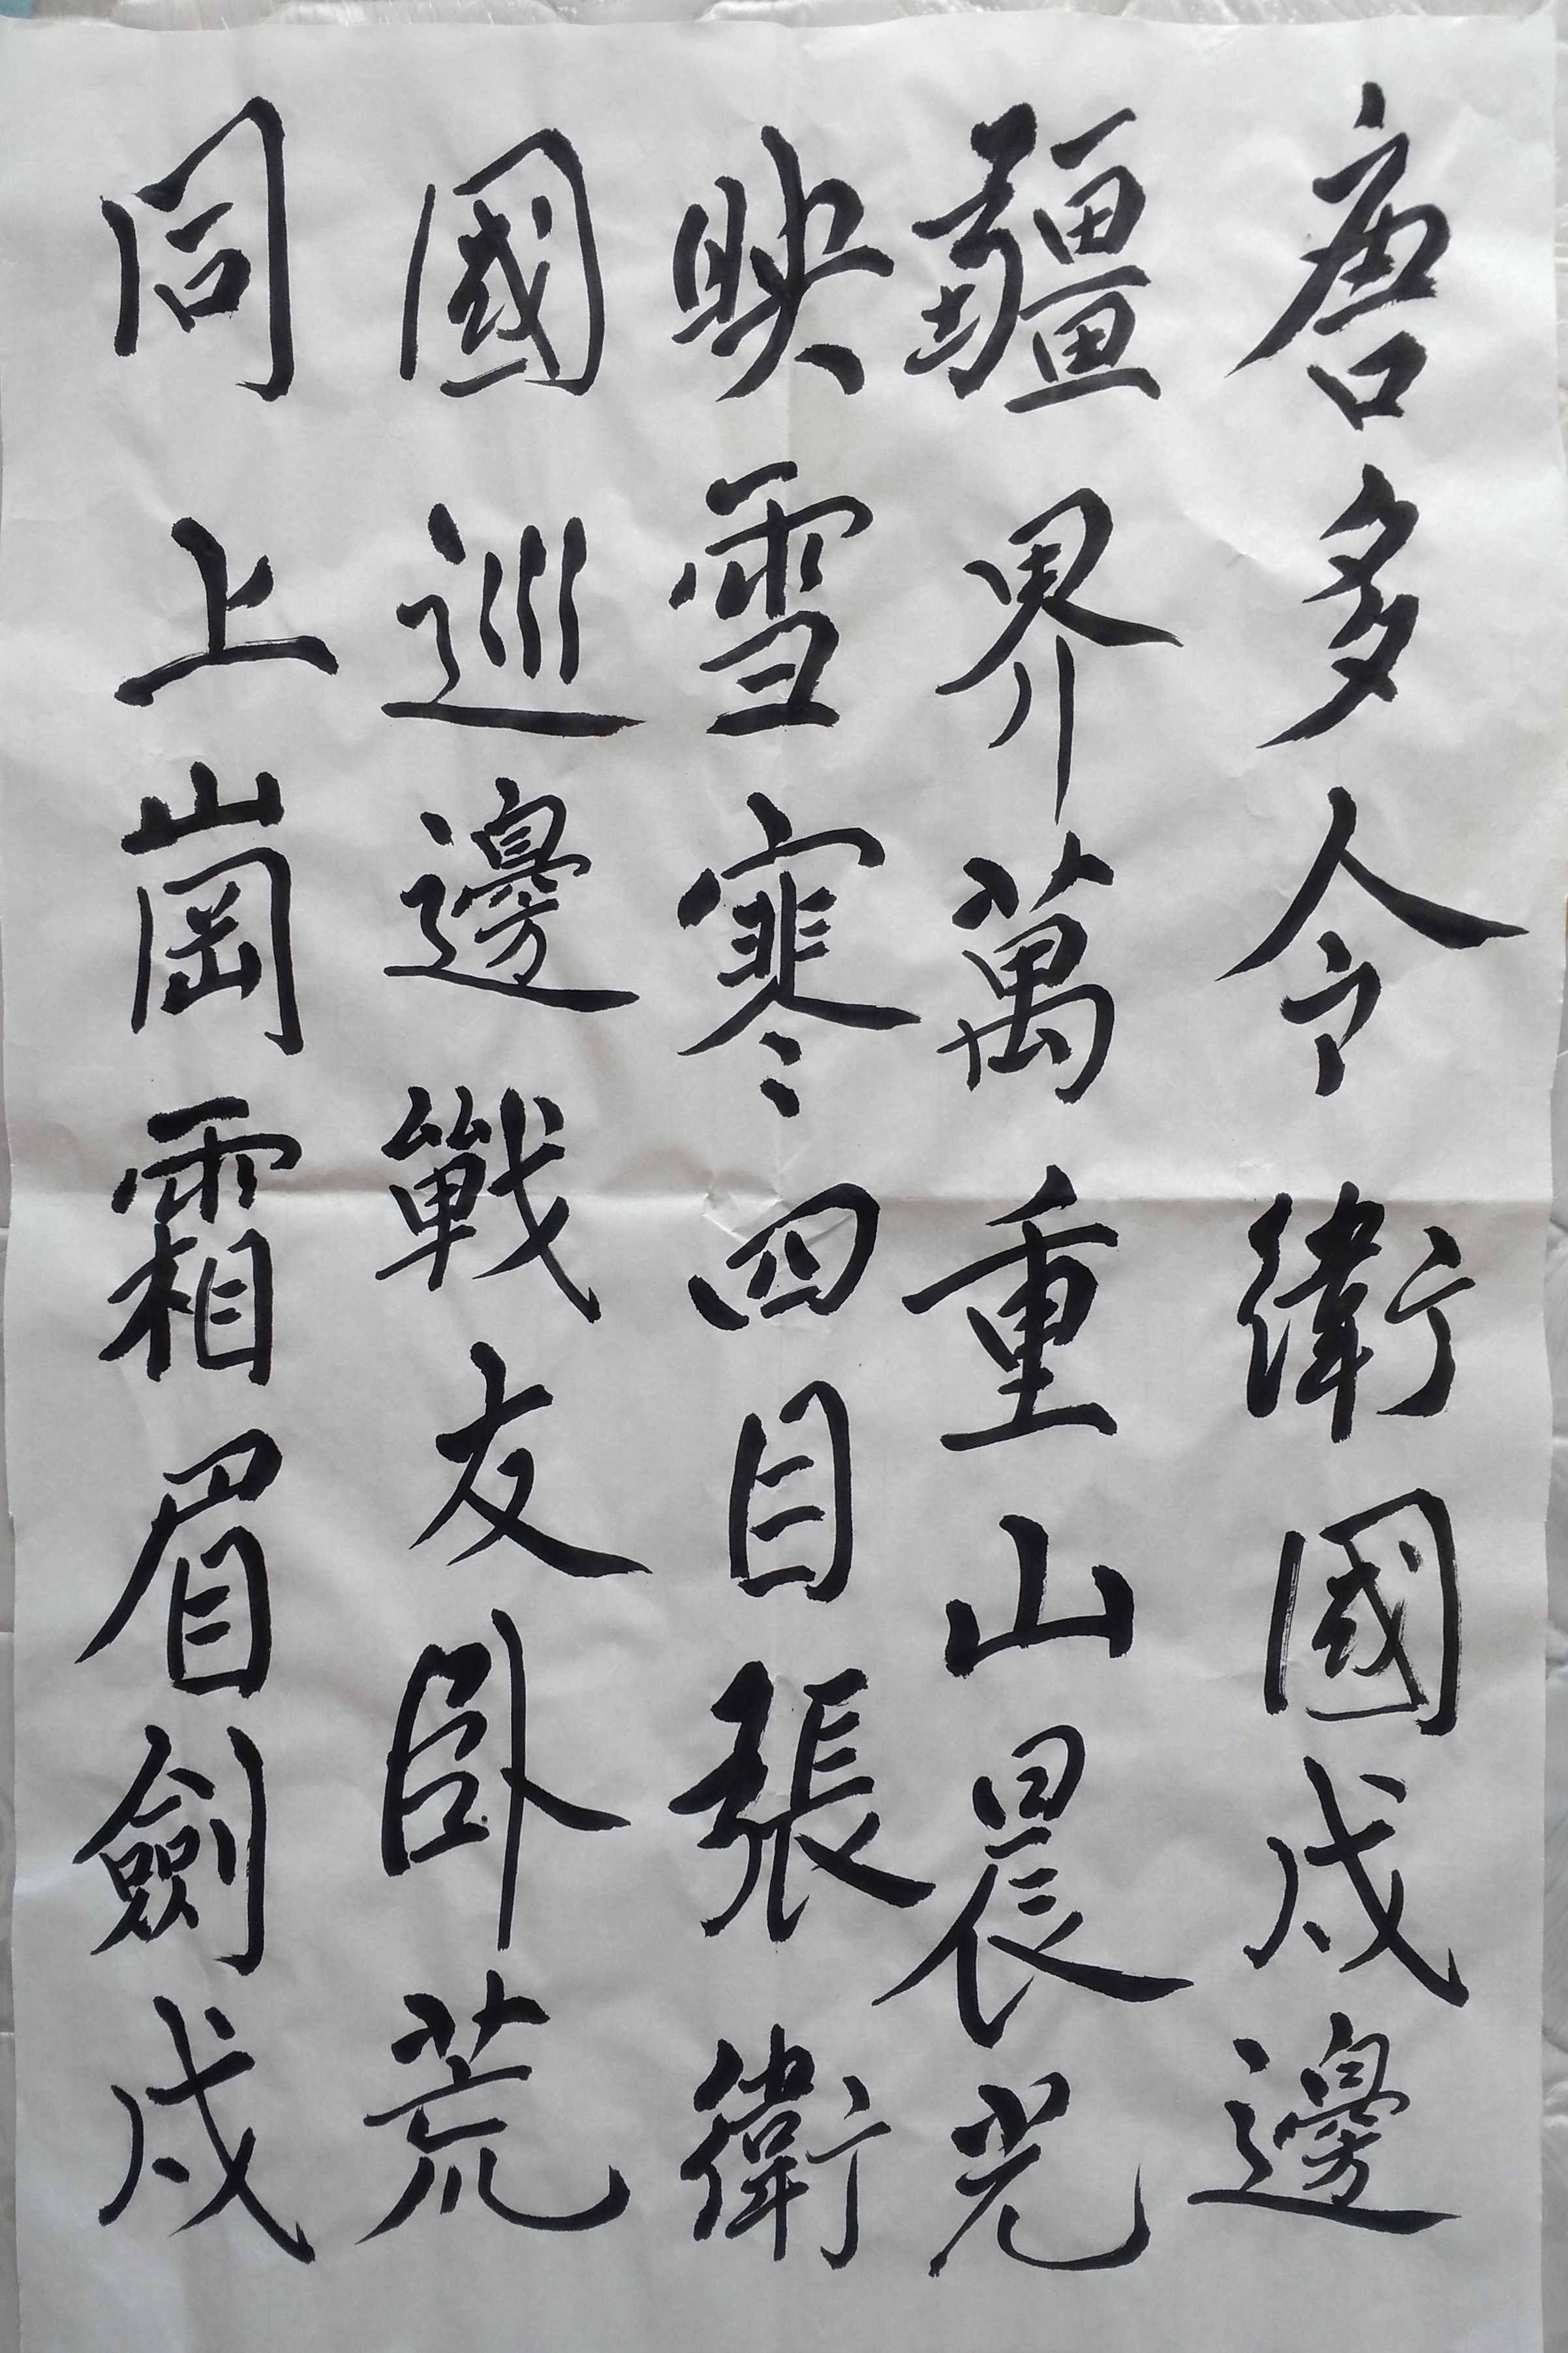 唐多令衛國戍邊
疆界萬重山晨光
映雪寒四目張衛
國巡邊戰友卧荒
同上崗霜眉劍戍